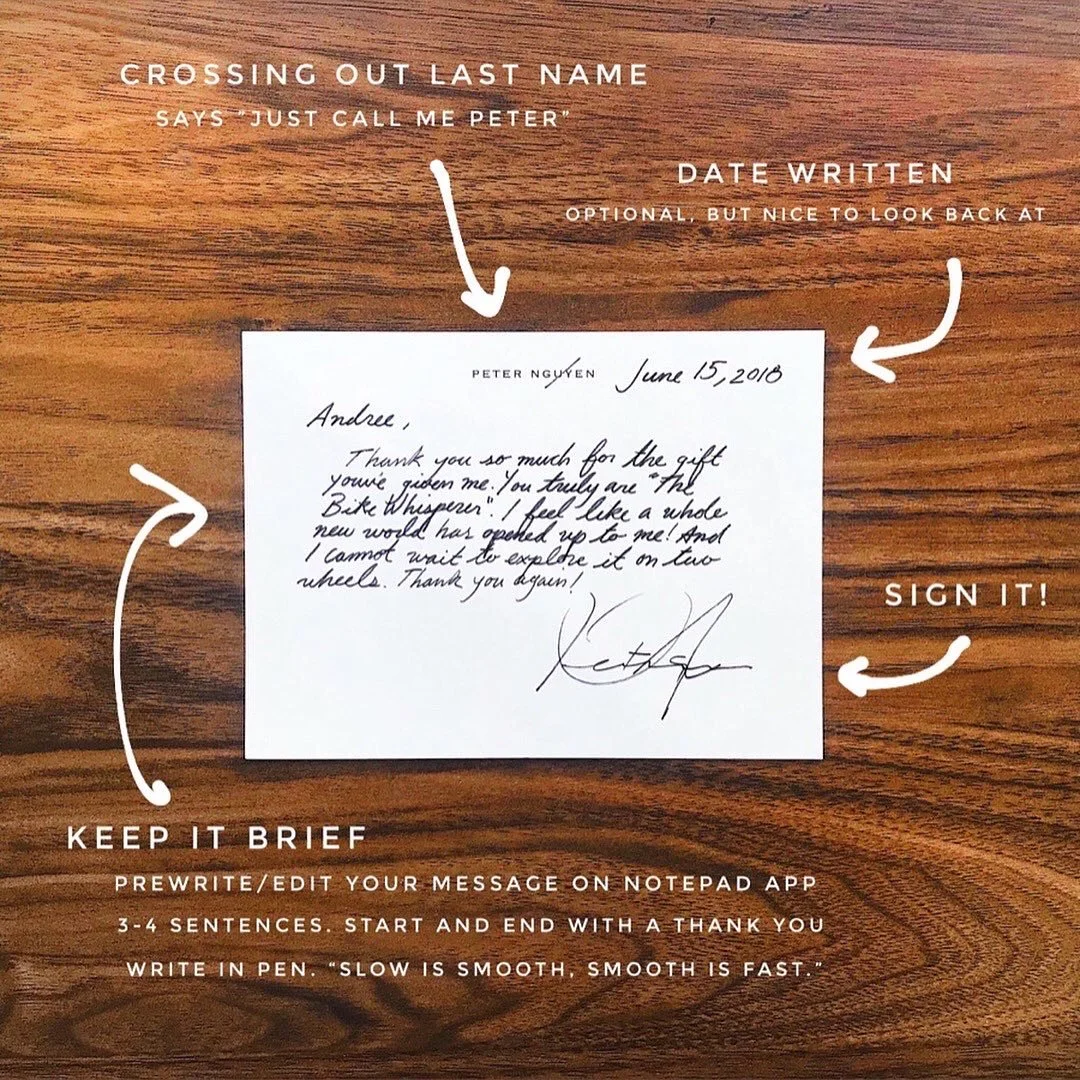 CROSSING OUT LAST NAME
SAYS "JUST CALL ME PETER"
DATE WRITTEN
OPTIONAL, BUT NICE TO LOOK BACK AT
PETER NGUYEN
June 15, 2018
Andree,
Thank you so much for the gift
you've given me. You truly are "The
Bike Whisperer". I feel like a whole
new world has opened up to me! And
I cannot wait to explore it on two
wheels. Thank you again!
SIGN IT!
KEEP IT BRIEF
PREWRITE/EDIT YOUR MESSAGE ON NOTEPAD APP
3-4 SENTENCES. START AND END WITH A THANK YOU
WRITE IN PEN. "SLOW IS SMOOTH, SMOOTH IS FAST."